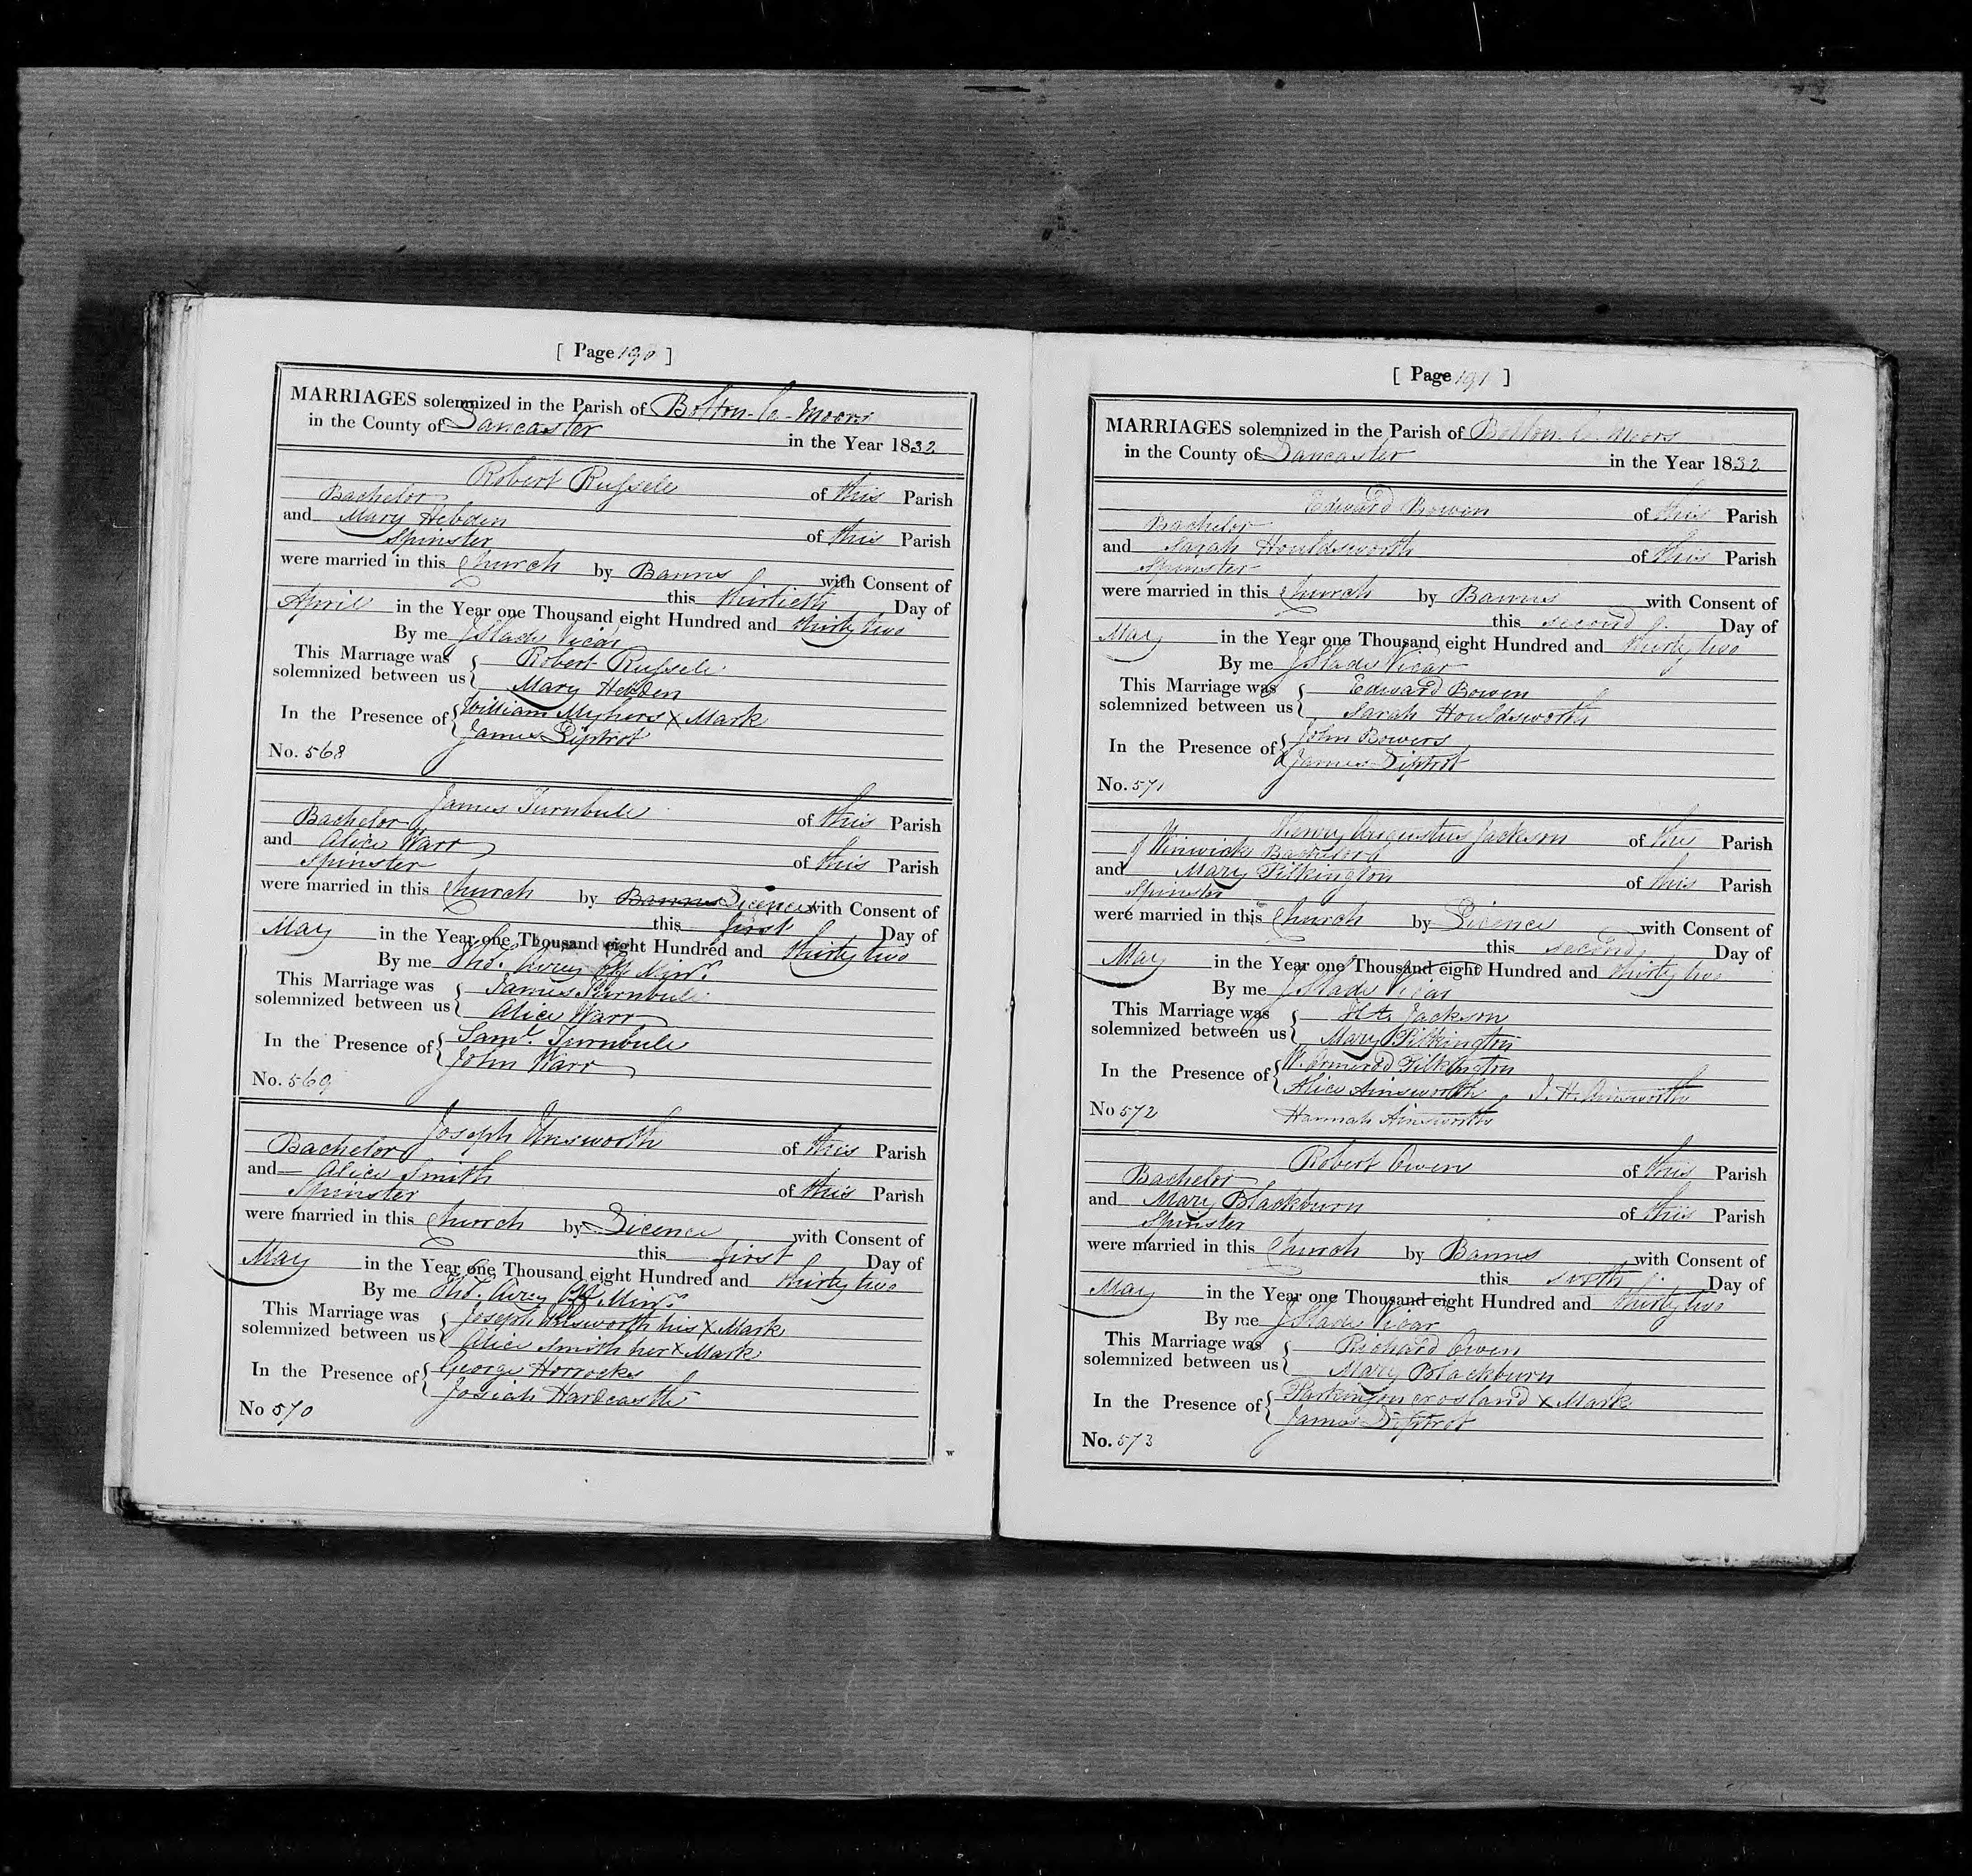 [ Page 190 ]
MARRIAGES solemnized in the Parish of Bolton-le-Moors
in the County of Lancaster in the Year 1832
Robert Russell of this Parish
Bachelor
and Mary Hebden of this Parish
Spinster
were married in this Church by Banns with Consent of
this thirtieth Day of
April in the Year one Thousand eight Hundred and thirty two
By me J Slade Vicar
This Marriage was solemnized between us { Robert Russell
Mary Hebden
In the Presence of { William Myhers X Mark
James Diptrot
No. 568
James Turnbull of this Parish
Bachelor
and Alice Warr of this Parish
Spinster
were married in this Church by Banns Licence with Consent of
this first Day of
May in the Year one Thousand eight Hundred and thirty two
By me Thos. Airey Off Minr.
This Marriage was solemnized between us { James Turnbull
Alice Warr
In the Presence of { Saml. Turnbull
John Warr
No. 569
Joseph Unsworth of this Parish
Bachelor
and Alice Smith of this Parish
Spinster
were married in this Church by Licence with Consent of
this first Day of
May in the Year one Thousand eight Hundred and thirty two
By me Thos. Airey Off Minr.
This Marriage was solemnized between us { Joseph Unsworth his X Mark
Alice Smith her X Mark
In the Presence of { George Horrocks
Josiah Hardcastle
No 570
w
[ Page 191 ]
MARRIAGES solemnized in the Parish of Bolton-le-Moors
in the County of Lancaster in the Year 1832
Edward Bowen of this Parish
Bachelor
and Sarah Houldsworth of this Parish
Spinster
were married in this Church by Banns with Consent of
this second Day of
May in the Year one Thousand eight Hundred and thirty two
By me J Slade Vicar
This Marriage was solemnized between us { Edward Bowen
Sarah Houldsworth
In the Presence of { John Bowers
James Diptrot
No. 571
Henry Augustus Jackson of the Parish
of Winwick Bachelor
and Mary Pilkington of this Parish
Spinster
were married in this Church by Licence with Consent of
this second Day of
May in the Year one Thousand eight Hundred and thirty two
By me J Slade Vicar
This Marriage was solemnized between us { H A Jackson
Mary Pilkington
In the Presence of { W. Ormerod Pilkington
Alice Ainsworth, J. H. Ainsworth
No 572 Hannah Ainsworth
Robert Owen of this Parish
Bachelor
and Mary Blackburn of this Parish
Spinster
were married in this Church by Banns with Consent of
this sixth Day of
May in the Year one Thousand eight Hundred and thirty two
By me J Slade Vicar
This Marriage was solemnized between us { Richard Owen
Mary Blackburn
In the Presence of { Parkinson Crosland X Mark
James Diptrot
No. 573